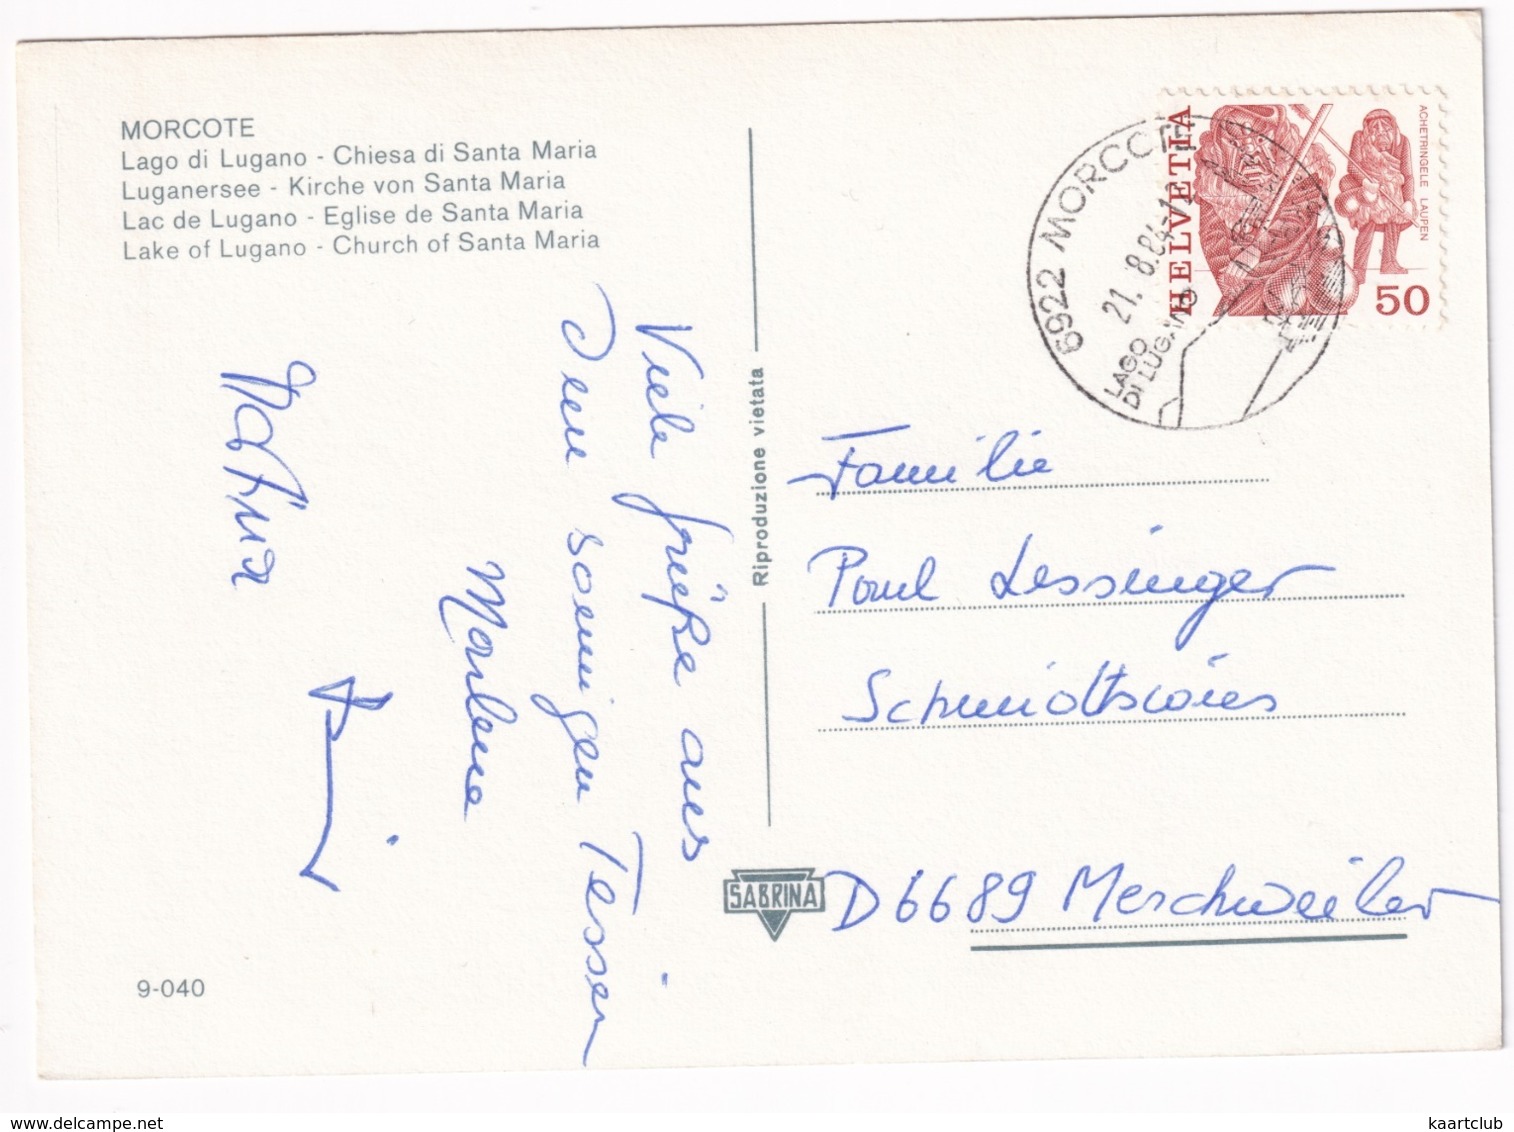 MORCOTE
Lago di Lugano - Chiesa di Santa Maria
Luganersee - Kirche von Santa Maria
Lac de Lugano - Eglise de Santa Maria
Lake of Lugano - Church of Santa Maria
Viele Grüße aus
dem sonnigen Tessin
Marlena
9-040
Riproduzione vietata
SABRINA
6922 MORCOTE
21. 8.84-1
LAGO
DI LUGANO
HELVETIA
ACHETRINGELE LAUPEN
50
Familie
Paul Lessinger
D 6689 Merchweiler
delcampe.net
kaartclub